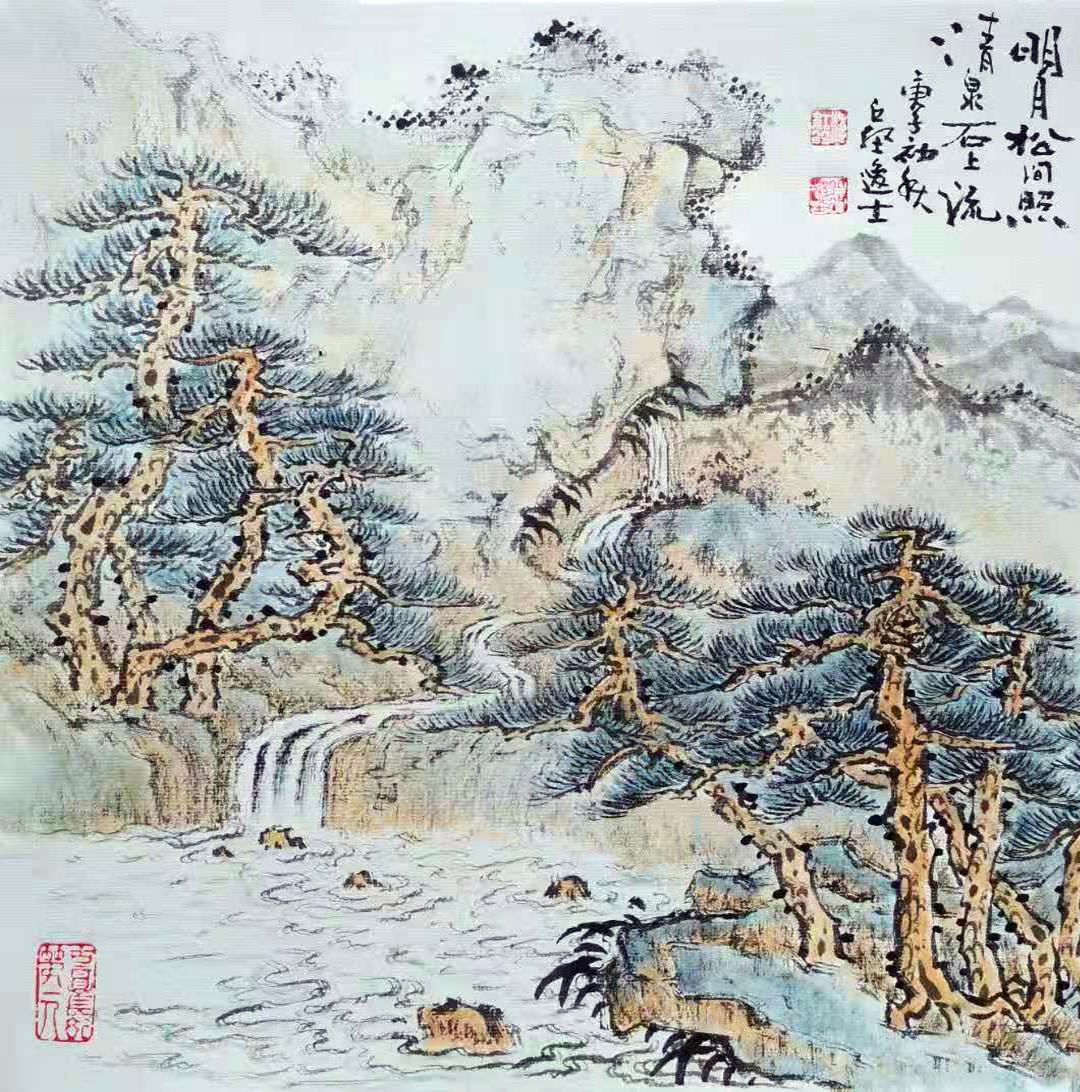 明月松间照
清泉石上流
庚子初秋
丘壑逸士